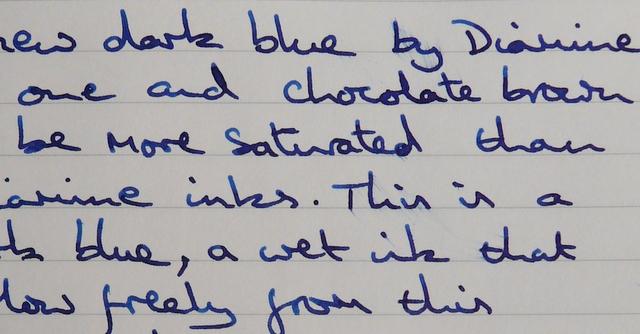 new dark blue by Diamine
one and chocolate brown
be more saturated than
iamine inks. This is a
k blue, a wet ink that
low freely from this